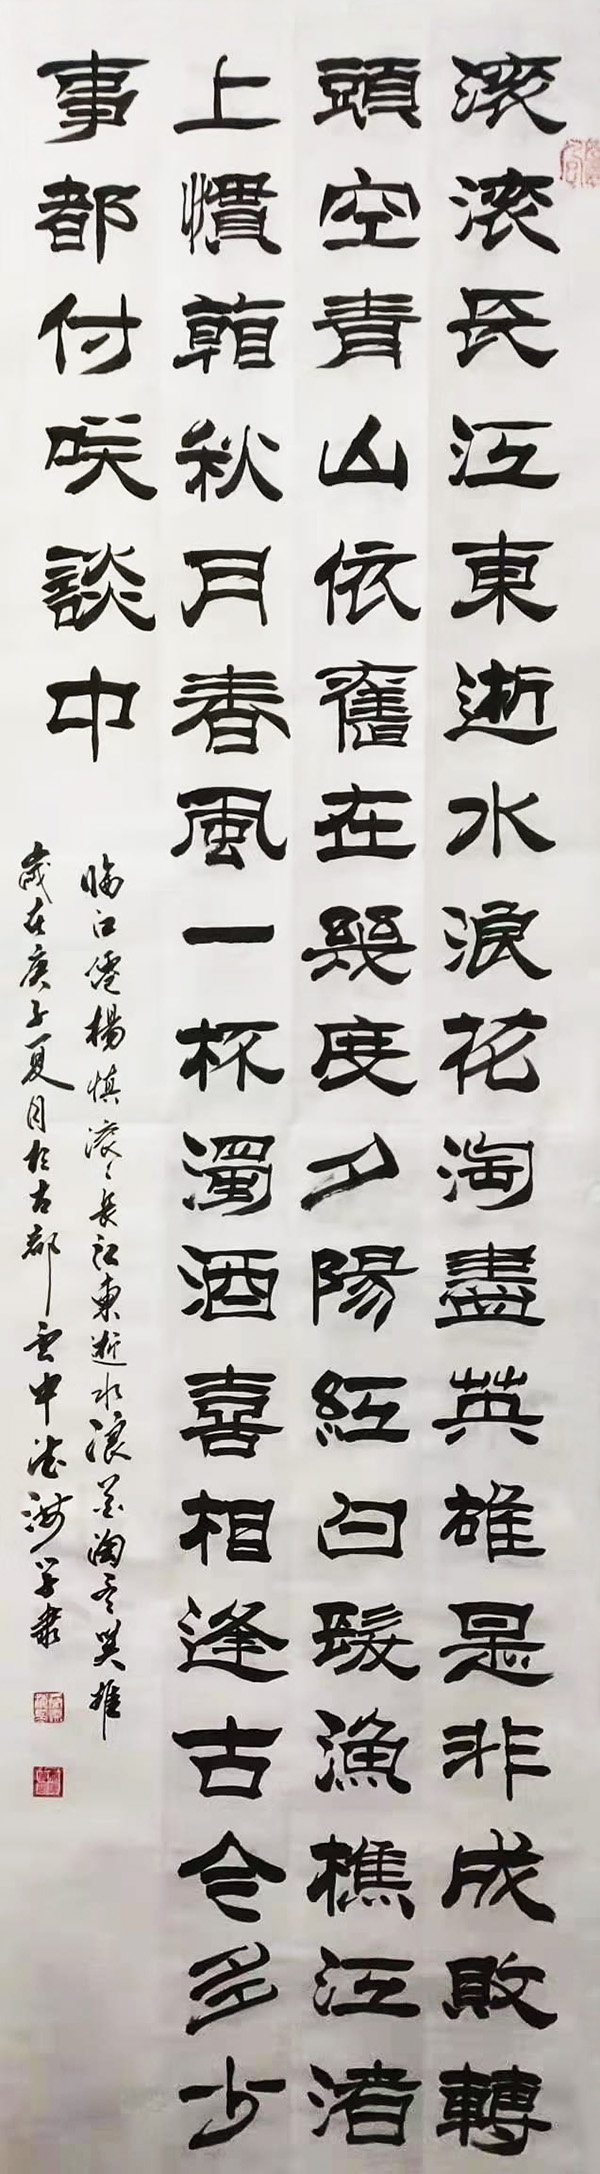 滚滚長江東逝水浪花淘盡英雄是非成敗轉
頭空青山依舊在幾度夕陽紅白髮漁樵江渚
上慣看秋月春風一杯濁酒喜相逢古今多少
事都付咲談中
臨江僊楊慎滚〻長江東逝水浪花淘尽英雄
歲在庚子夏月於古都雲中